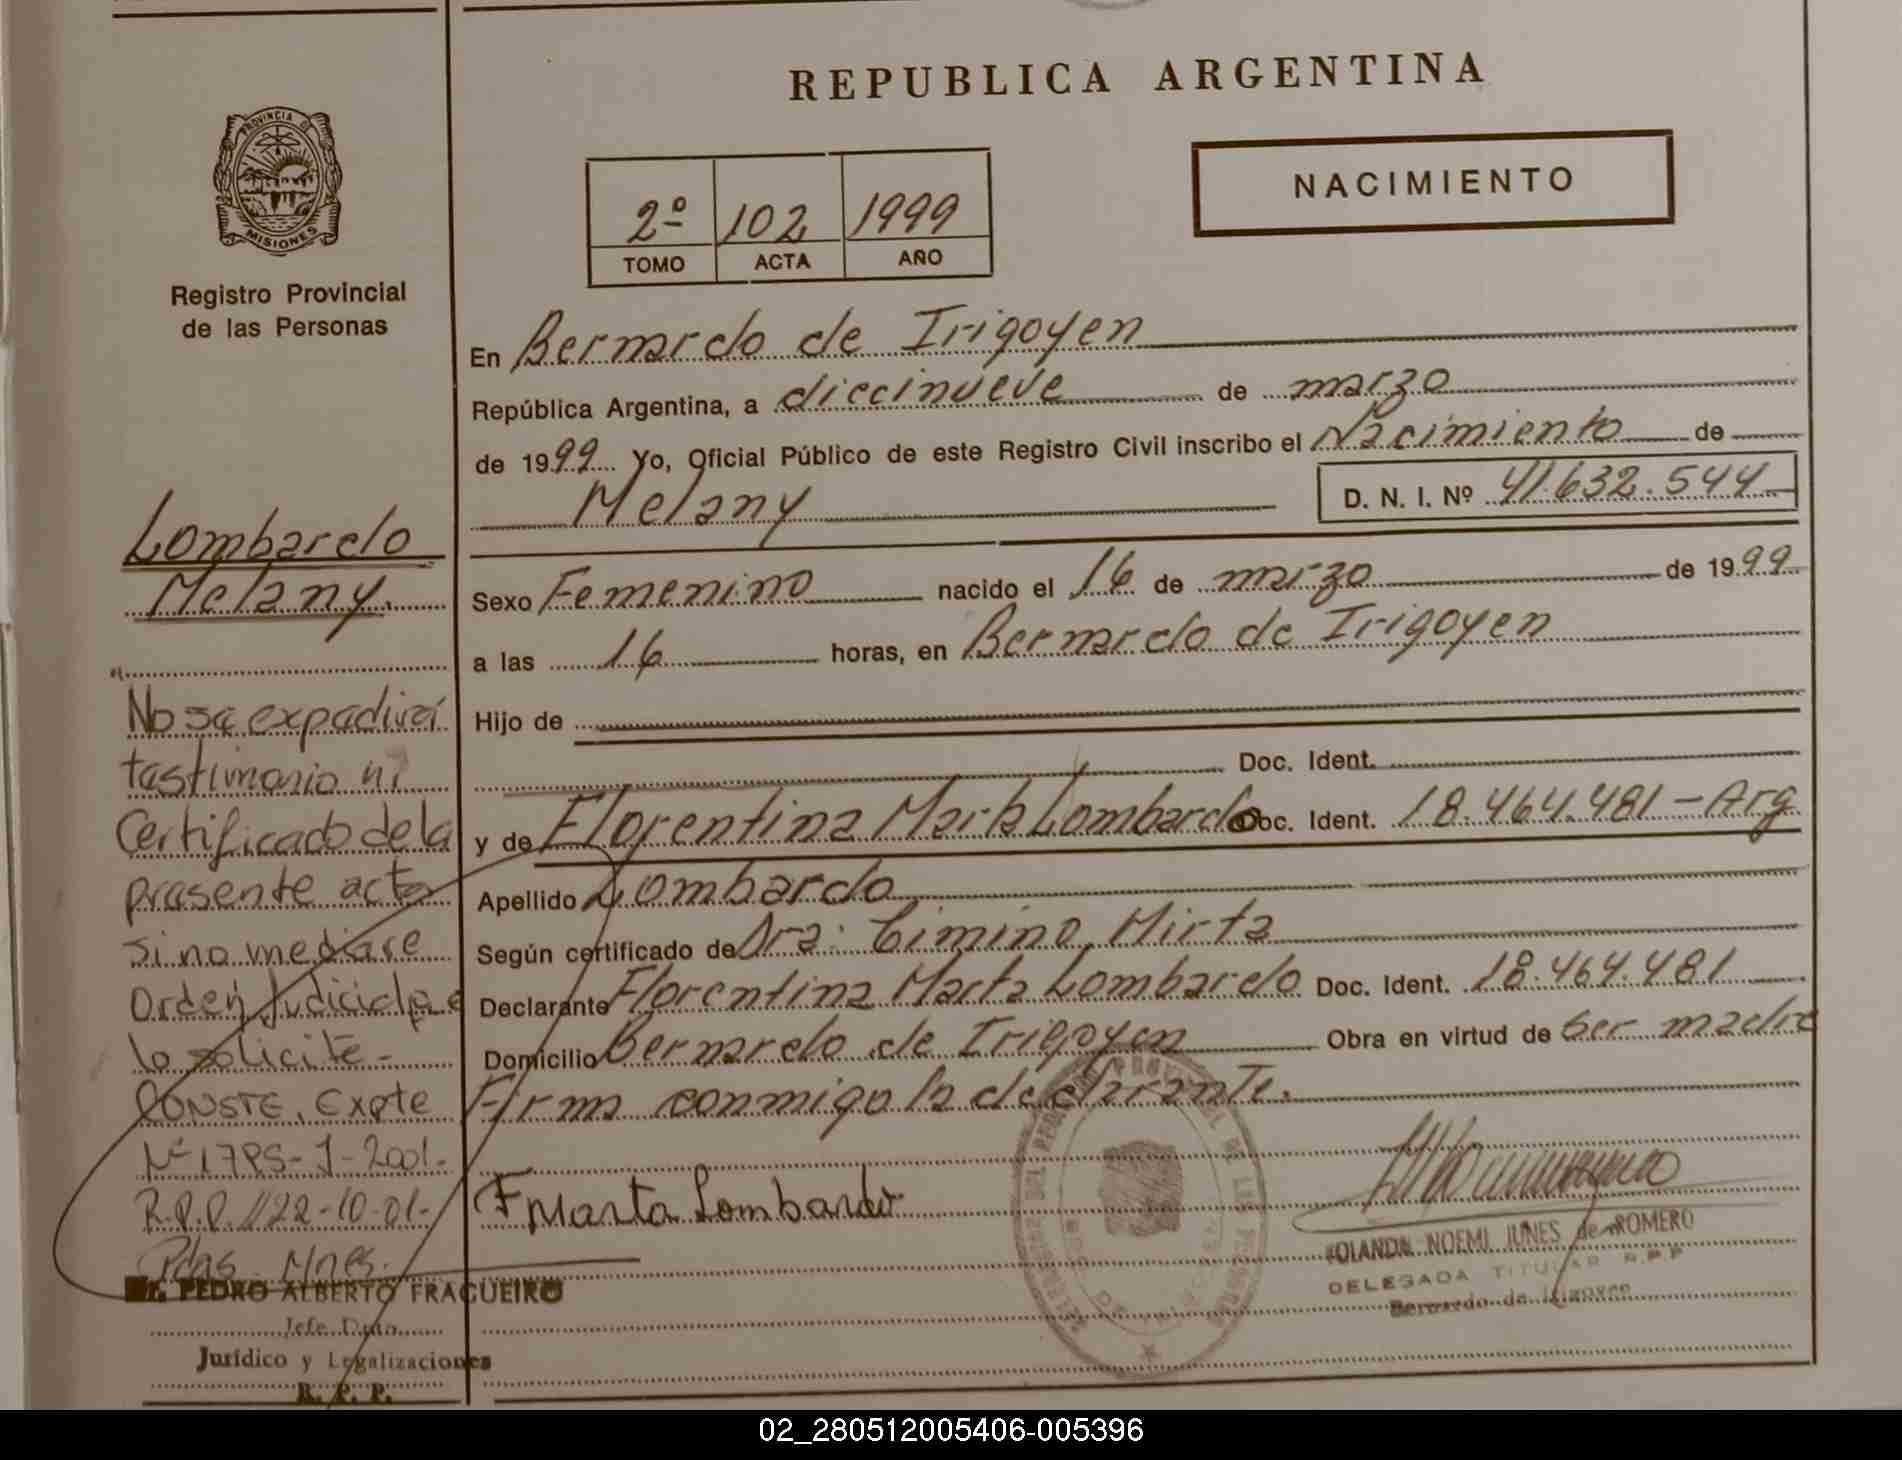 REPUBLICA ARGENTINA
PROVINCIA DE
MISIONES
Registro Provincial
de las Personas
2º 102 1999
TOMO ACTA AÑO
NACIMIENTO
Lombardo
Melany.
No se expedirá
testimonio ni
Certificado de la
presente acta
si no mediare
Orden Judicial que
lo solicite-
CONSTE, Expte
R.P.P. 1122-10-01.-
Pdas. Mnes.
Dr. PEDRO ALBERTO FRAGUEIRO
Jefe Dpto.
Jurídico y Legalizaciones
R. P. P.
En Bernardo de Irigoyen
República Argentina, a diecinueve de marzo
de 1999 Yo, Oficial Público de este Registro Civil inscribo el Nacimiento de
Melany D. N. I. Nº 41.632.544
Sexo Femenino nacido el 16 de marzo de 1999
a las 16 horas, en Bernardo de Irigoyen
Hijo de
Doc. Ident.
y de Florentina Marta Lombardo Doc. Ident. 18.464.481 - Arg.
Apellido Lombardo
Según certificado de Dra: Cimino, Mirta
Declarante Florentina Marta Lombardo Doc. Ident. 18.464.481
Domicilio Bernardo de Irigoyen Obra en virtud de Ser madre
Firma conmigo la declarante.
F Marta Lombardo
YOLANDA NOEMI JUNES de ROMERO
DELEGADA TITULAR R.P.P
Bernardo de Irigoyen
02_280512005406-005396